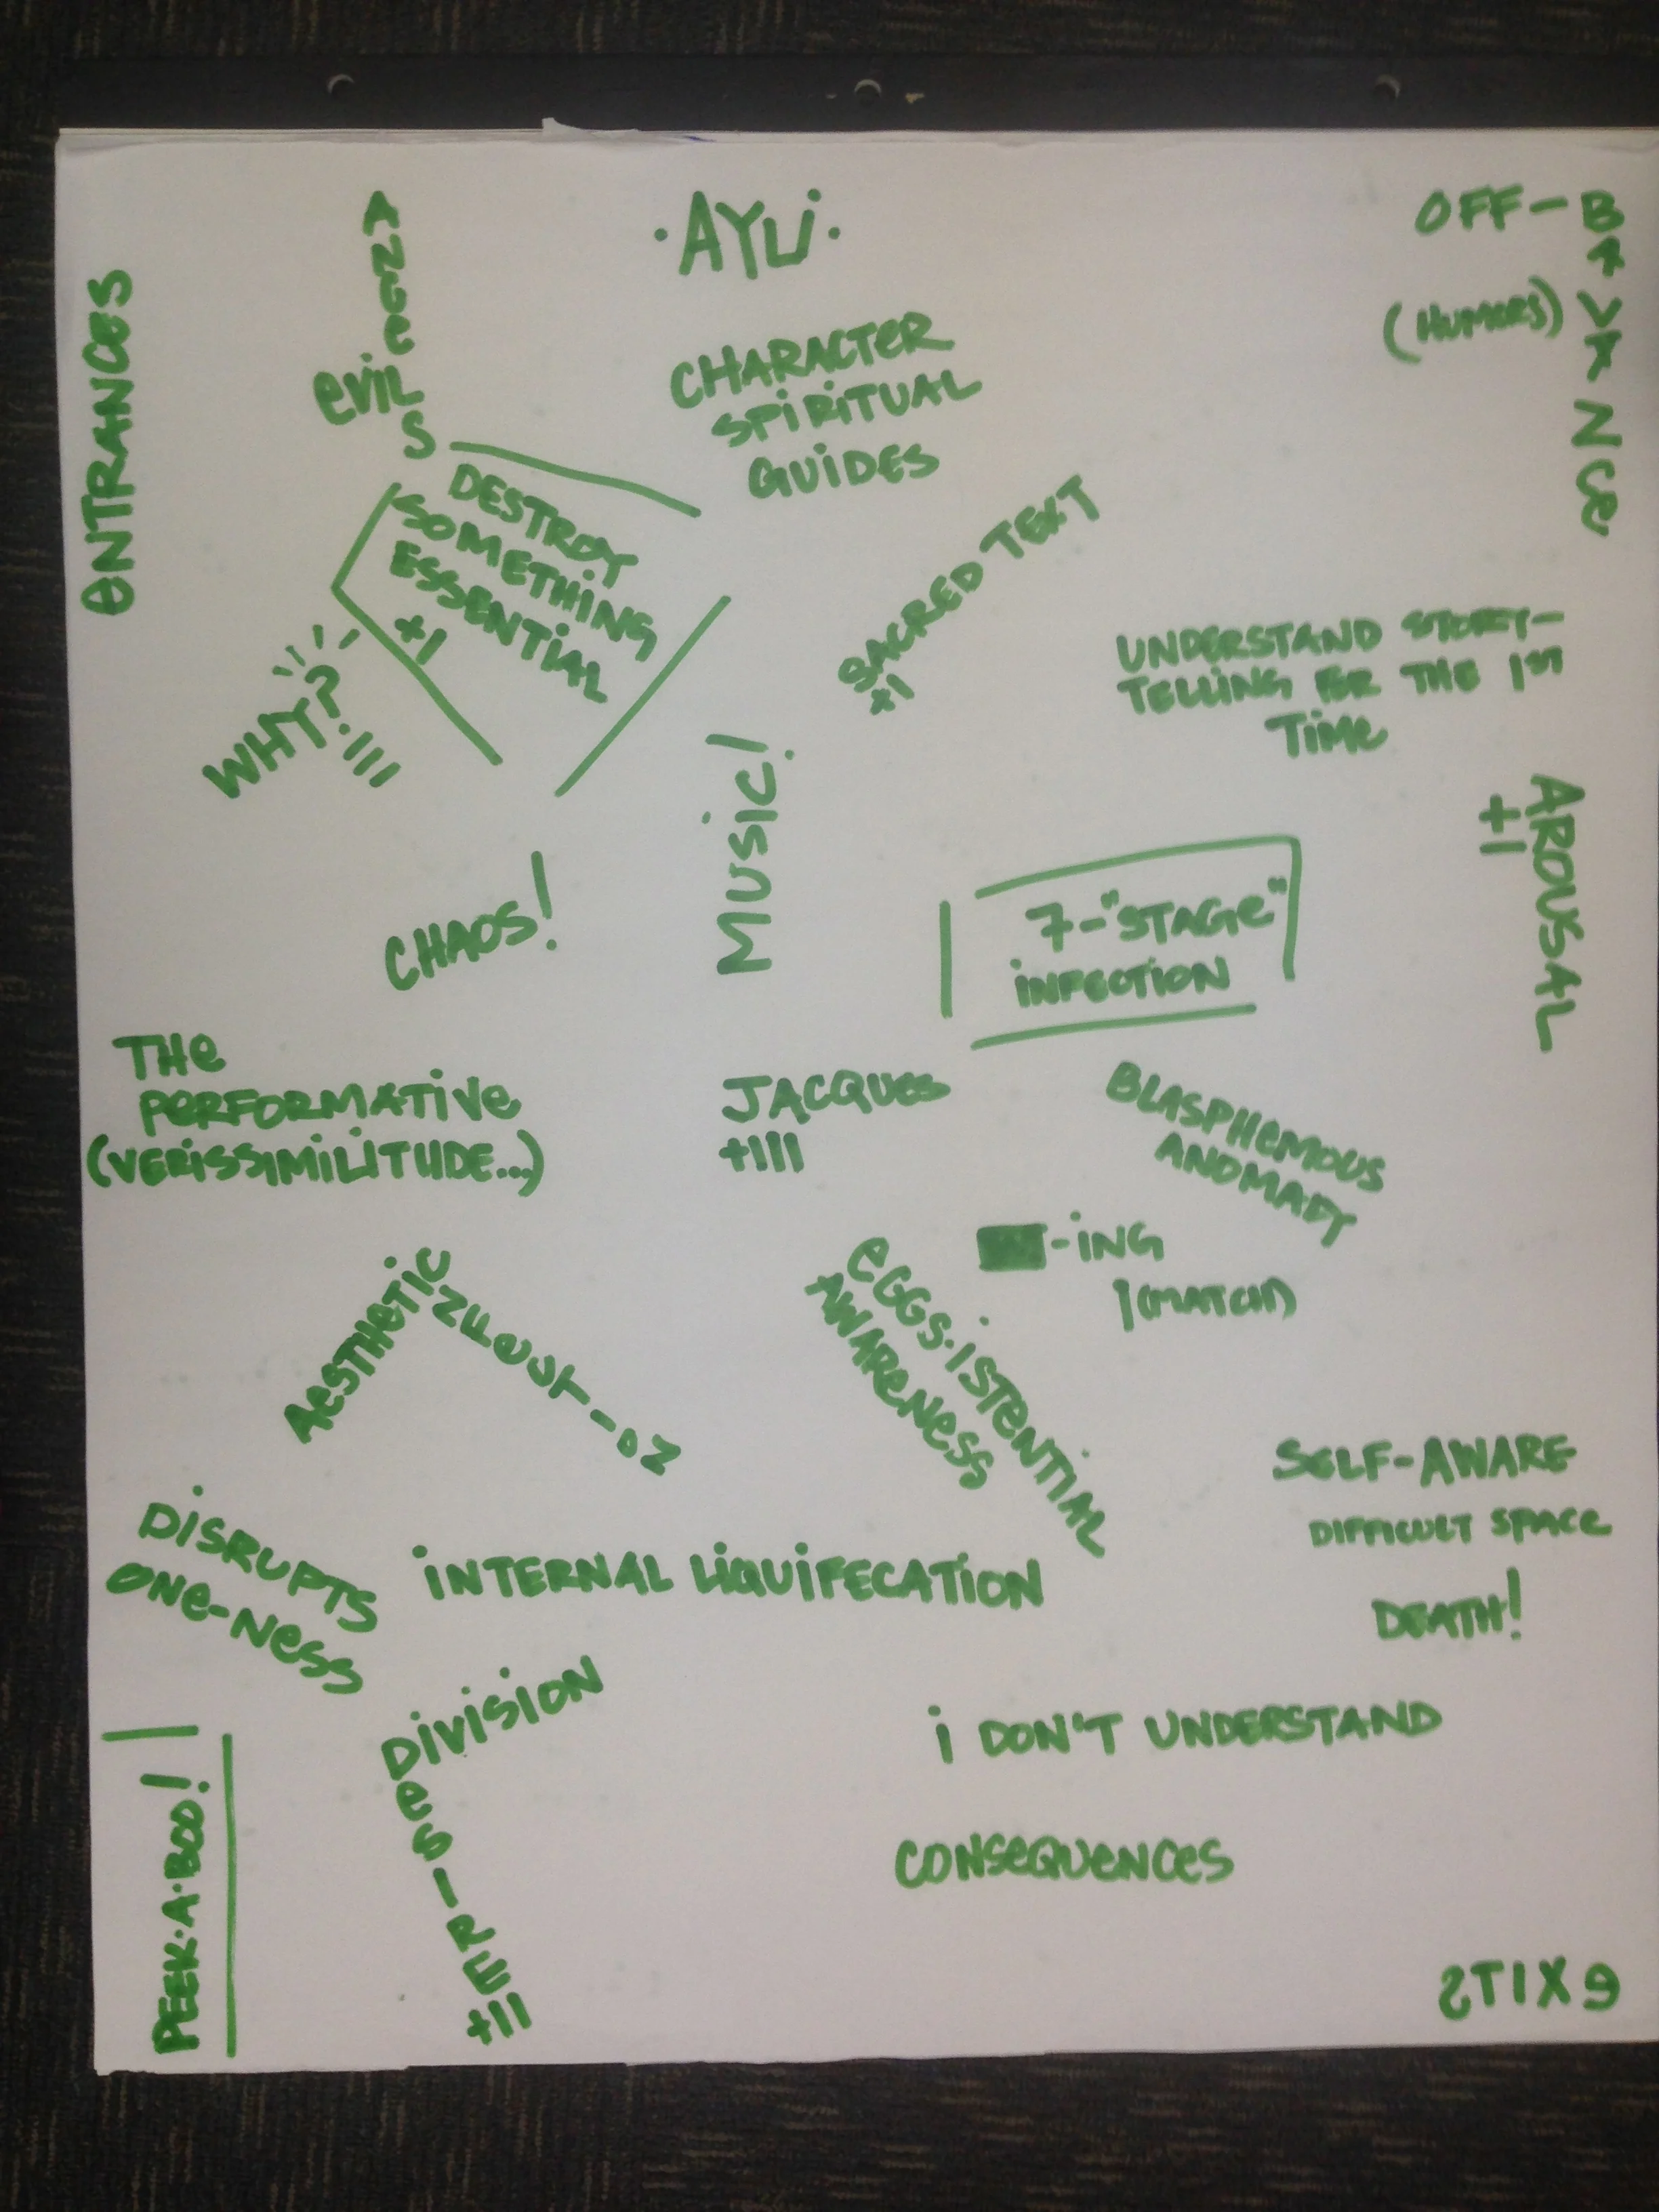 ·AYLI·
OFF-BALANCE
(HUMORS)
ENTRANCES
ANGELS
EVIL
CHARACTER
SPIRITUAL
GUIDES
DESTROY
SOMETHING
ESSENTIAL
+1
SACRED TEXT
+1
WHY? III
UNDERSTAND STORY-
TELLING FOR THE 1ST
TIME
MUSIC!
AROUSAL
+1
CHAOS!
7-"STAGE"
INFECTION
THE
PERFORMATIVE
(VERISSIMILITUDE...)
JACQUES
+III
BLASPHEMOUS
-ING
I(MATCH)
AESTHETIC
EGGS·ISTENTIAL
AWARENESS
SELF-AWARE
DIFFICULT SPACE
DEATH!
DISRUPTS
ONE-NESS
INTERNAL LIQUIFECATION
DIVISION
DES-IRE
+II
I DON'T UNDERSTAND
CONSEQUENCES
PEEK·A·BOO!
EXITS